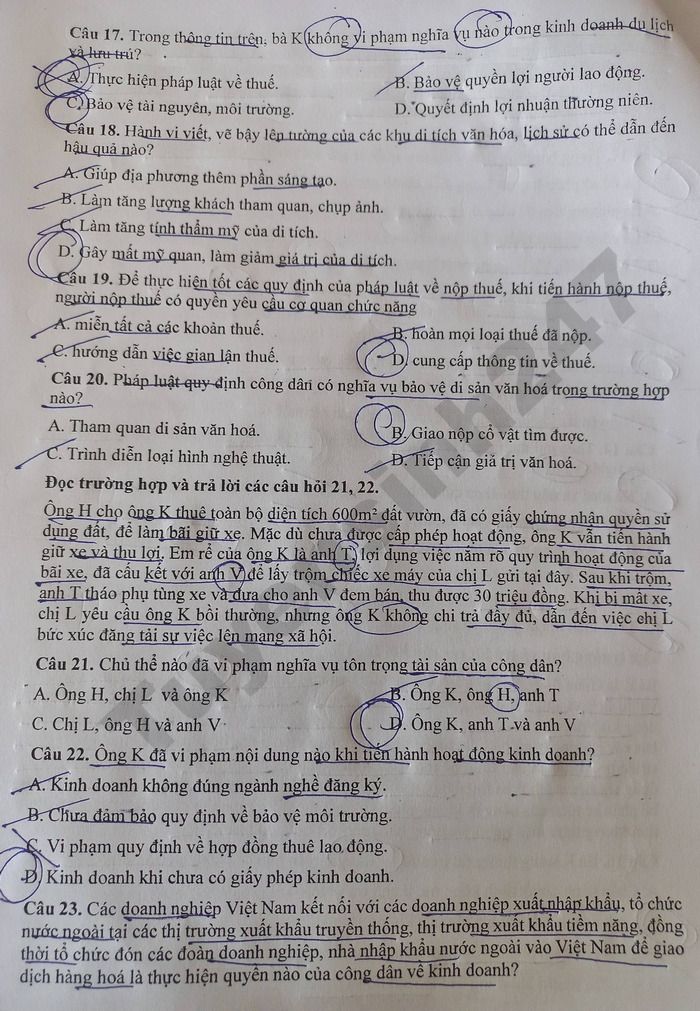 Câu 17. Trong thông tin trên, bà K không vi phạm nghĩa vụ nào trong kinh doanh du lịch
và lưu trú?
A. Thực hiện pháp luật về thuế. B. Bảo vệ quyền lợi người lao động.
C. Bảo vệ tài nguyên, môi trường. D. Quyết định lợi nhuận thường niên.
Câu 18. Hành vi viết, vẽ bậy lên tường của các khu di tích văn hóa, lịch sử có thể dẫn đến
hậu quả nào?
A. Giúp địa phương thêm phần sáng tạo.
B. Làm tăng lượng khách tham quan, chụp ảnh.
C. Làm tăng tính thẩm mỹ của di tích.
D. Gây mất mỹ quan, làm giảm giá trị của di tích.
Câu 19. Để thực hiện tốt các quy định của pháp luật về nộp thuế, khi tiến hành nộp thuế,
người nộp thuế có quyền yêu cầu cơ quan chức năng
A. miễn tất cả các khoản thuế. B. hoàn mọi loại thuế đã nộp.
C. hướng dẫn việc gian lận thuế. D. cung cấp thông tin về thuế.
Câu 20. Pháp luật quy định công dân có nghĩa vụ bảo vệ di sản văn hoá trong trường hợp
nào?
A. Tham quan di sản văn hoá. B. Giao nộp cổ vật tìm được.
C. Trình diễn loại hình nghệ thuật. D. Tiếp cận giá trị văn hoá.
Đọc trường hợp và trả lời các câu hỏi 21, 22.
Ông H cho ông K thuê toàn bộ diện tích 600m² đất vườn, đã có giấy chứng nhận quyền sử
dụng đất, để làm bãi giữ xe. Mặc dù chưa được cấp phép hoạt động, ông K vẫn tiến hành
giữ xe và thu lợi. Em rể của ông K là anh T, lợi dụng việc nắm rõ quy trình hoạt động của
bãi xe, đã cấu kết với anh V để lấy trộm chiếc xe máy của chị L gửi tại đây. Sau khi trộm,
anh T tháo phụ tùng xe và đưa cho anh V đem bán, thu được 30 triệu đồng. Khi bị mất xe,
chị L yêu cầu ông K bồi thường, nhưng ông K không chi trả đầy đủ, dẫn đến việc chị L
bức xúc đăng tải sự việc lên mạng xã hội.
Câu 21. Chủ thể nào đã vi phạm nghĩa vụ tôn trọng tài sản của công dân?
A. Ông H, chị L và ông K B. Ông K, ông H, anh T
C. Chị L, ông H và anh V D. Ông K, anh T và anh V
Câu 22. Ông K đã vi phạm nội dung nào khi tiến hành hoạt động kinh doanh?
A. Kinh doanh không đúng ngành nghề đăng ký.
B. Chưa đảm bảo quy định về bảo vệ môi trường.
C. Vi phạm quy định về hợp đồng thuê lao động.
D. Kinh doanh khi chưa có giấy phép kinh doanh.
Câu 23. Các doanh nghiệp Việt Nam kết nối với các doanh nghiệp xuất nhập khẩu, tổ chức
nước ngoài tại các thị trường xuất khẩu truyền thống, thị trường xuất khẩu tiềm năng, đồng
thời tổ chức đón các đoàn doanh nghiệp, nhà nhập khẩu nước ngoài vào Việt Nam để giao
dịch hàng hoá là thực hiện quyền nào của công dân về kinh doanh?
Tuyensinh247